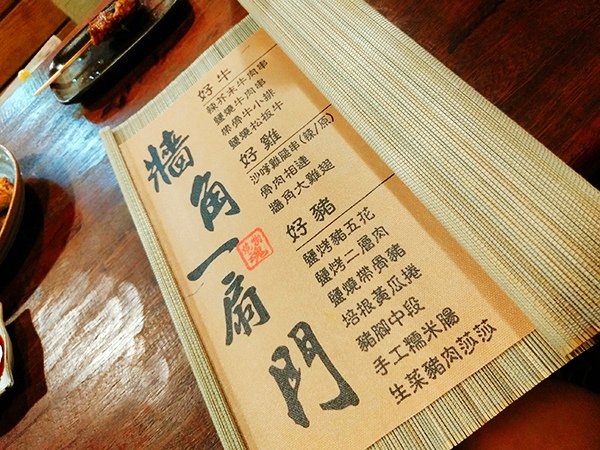 牆角一扇門
好牛
辣芥末牛肉串
鹽燒牛肉串
帶骨牛小排
鹽燒松板牛
好雞
沙嗲雞腿串(辣/原)
骨肉相連
牆角大雞翅
好豬
鹽烤豬五花
鹽烤二層肉
鹽燒帶骨豬
培根黃瓜捲
豬腳中段
手工糯米腸
生菜豬肉莎莎